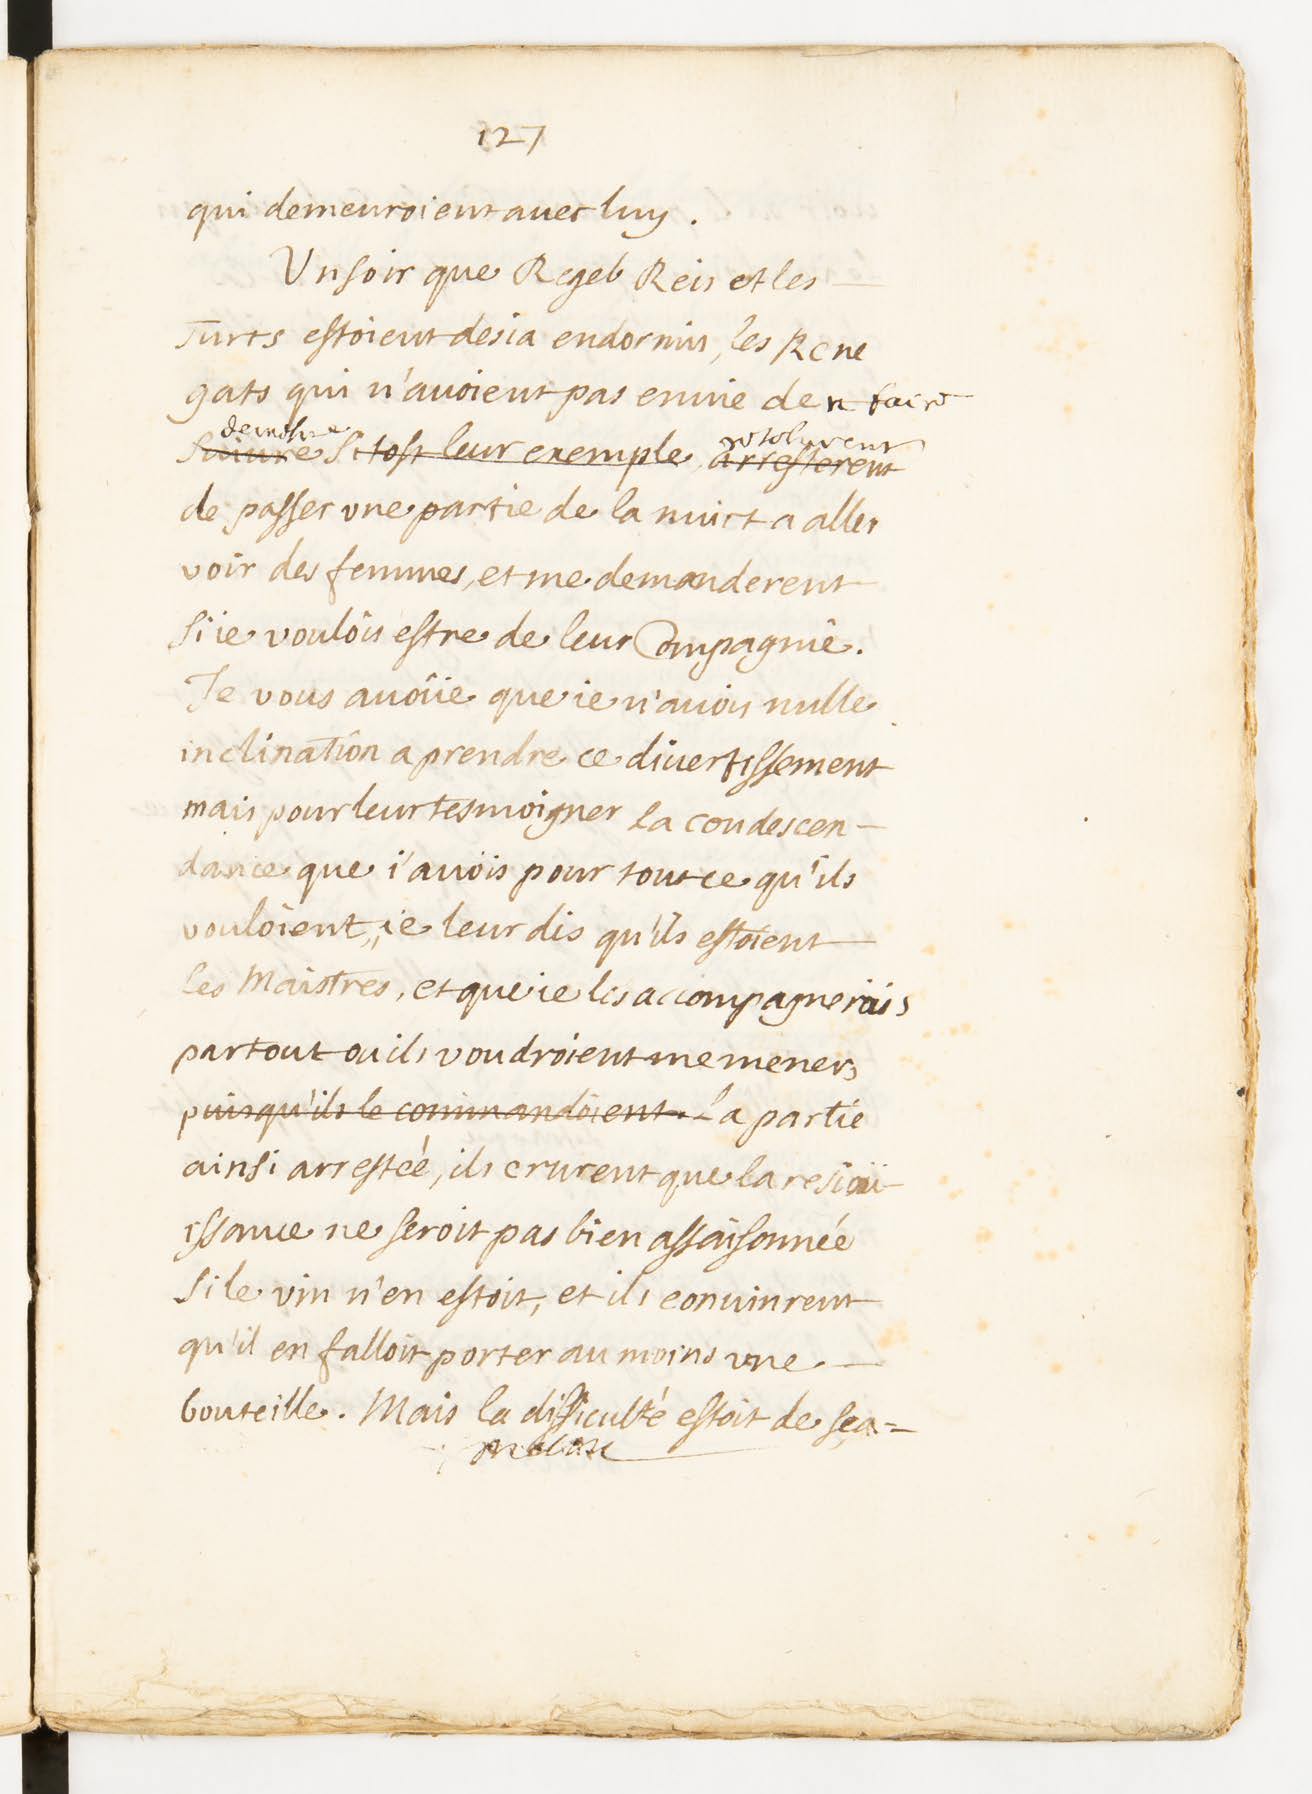 127
qui demeuroient auec luy.
Un soir que Regeb Reis et les
Turcs estoient desia endormis, les Rene
gats qui n'auoient pas enuie de n faire
de mesme resolurent
suiure si tost leur exemple arresterent
de passer vne partie de la nuict a aller
voir des femmes, et me demanderent
si ie voulois estre de leur Compagnie.
Je vous auoüe que ie n'auois nulle
inclination a prendre ce diuertissement
mais pour leur tesmoigner la condescen-
dance que i'auois pour tout ce qu'ils
vouloient, ie leur dis qu'ils estoient
les Maistres, et que ie les accompagnerois
partout ou ils voudroient me mener,
puisqu'ils le commandoient. la partie
ainsi arrestée, ils crurent que la resioü-
issance ne seroit pas bien assaisonnée
si le vin n'en estoit, et ils conuinrent
qu'il en falloit porter au moins vne
bouteille. Mais la difficulté estoit de sça-